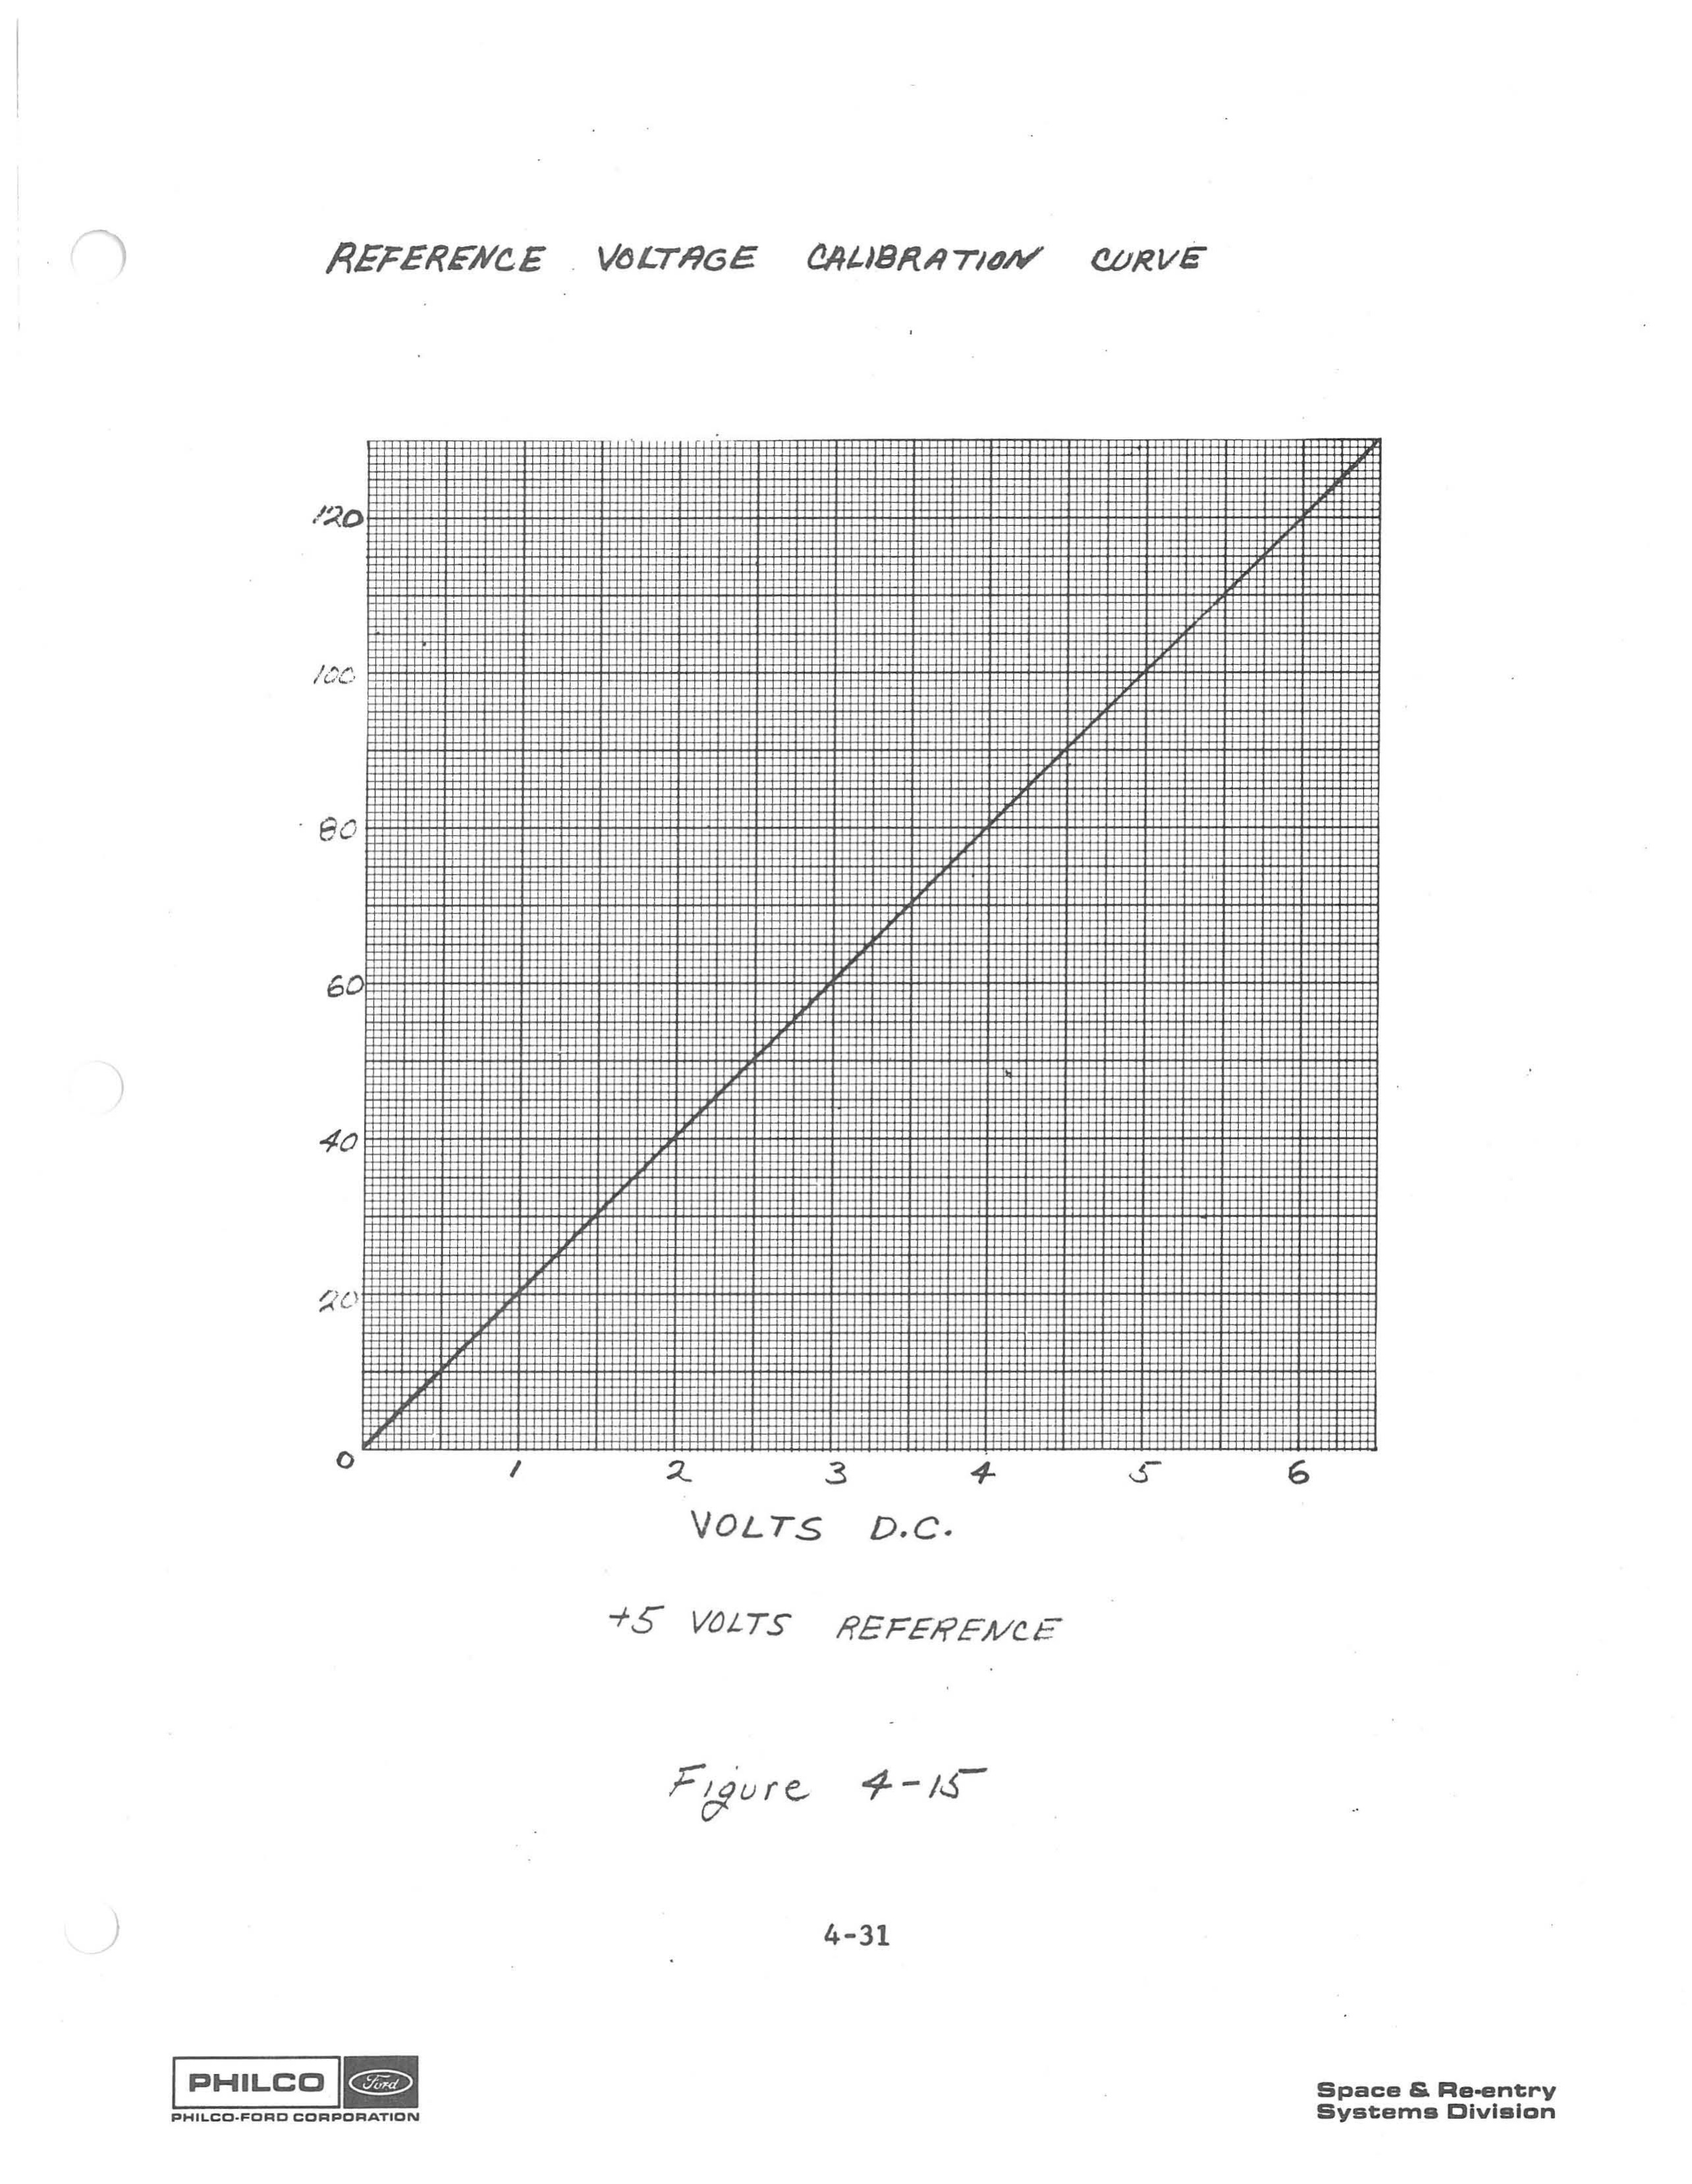 REFERENCE VOLTAGE CALIBRATION CURVE
120
100
80
60
40
20
0
1 2 3 4 5 6
VOLTS D.C.
+5 VOLTS REFERENCE
Figure 4-15
4-31
PHILCO Ford
PHILCO-FORD CORPORATION
Space & Re-entry
Systems Division